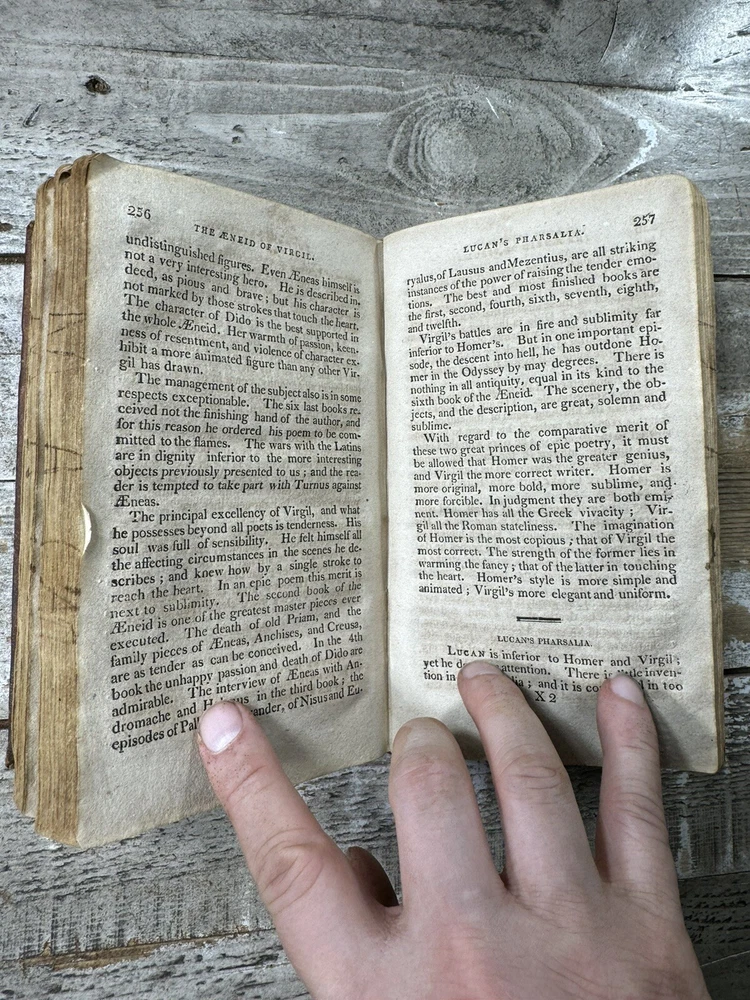 256
THE ÆNEID OF VIRGIL.
undistinguished figures. Even Æneas himself is
not a very interesting hero. He is described in.
deed, as pious and brave; but his character is
not marked by those strokes that touch the heart.
The character of Dido is the best supported in
the whole Æneid. Her warmth of passion, keen-
ness of resentment, and violence of character ex-
hibit a more animated figure than any other Vir-
gil has drawn.
The management of the subject also is in some
respects exceptionable. The six last books re-
ceived not the finishing hand of the author, and
for this reason he ordered his poem to be com-
mitted to the flames. The wars with the Latins
are in dignity inferior to the more interesting
objects previously presented to us; and the rea-
der is tempted to take part with Turnus against
Æneas.
The principal excellency of Virgil, and what
he possesses beyond all poets is tenderness. His
soul was full of sensibility. He felt himself all
the affecting circumstances in the scenes he de-
scribes; and knew how by a single stroke to
reach the heart. In an epic poem this merit is
next to sublimity. The second book of the
Æneid is one of the greatest master pieces ever
executed. The death of old Priam, and the
family pieces of Æneas, Anchises, and Creusa,
are as tender as can be conceived. In the 4th
book the unhappy passion and death of Dido are
admirable. The interview of Æneas with An-
dromache and in the third book; the
episodes of of Nisus and Eu-
257
LUCAN'S PHARSALIA.
ryalus, of Lausus and Mezentius, are all striking
instances of the power of raising the tender emo-
tions. The best and most finished books are
the first, second, fourth, sixth, seventh, eighth,
and twelfth.
Virgil's battles are in fire and sublimity far
inferior to Homer's. But in one important epi-
sode, the descent into hell, he has outdone Ho-
mer in the Odyssey by may degrees. There is
nothing in all antiquity, equal in its kind to the
sixth book of the Æneid. The scenery, the ob-
jects, and the description, are great, solemn and
sublime.
With regard to the comparative merit of
these two great princes of epic poetry, it must
be allowed that Homer was the greater genius,
and Virgil the more correct writer. Homer is
more original, more bold, more sublime, and
more forcible. In judgment they are both emi-
nent. Homer has all the Greek vivacity; Vir-
gil all the Roman stateliness. The imagination
of Homer is the most copious; that of Virgil the
most correct. The strength of the former lies in
warming the fancy; that of the latter in touching
the heart. Homer's style is more simple and
animated; Virgil's more elegant and uniform.
LUCAN'S PHARSALIA.
LUCAN is inferior to Homer and Virgil;
yet he attention. There is little inven-
tion in and it is in too
X 2